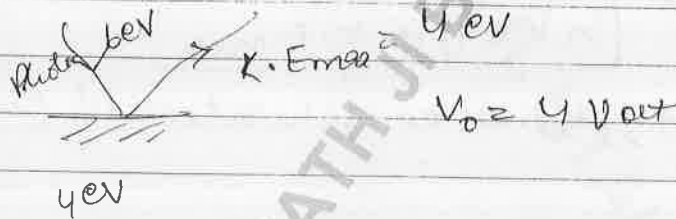 Photon 6eV
K.Emax = 4 eV
V₀ = 4 Volt
4eV
ATH JI